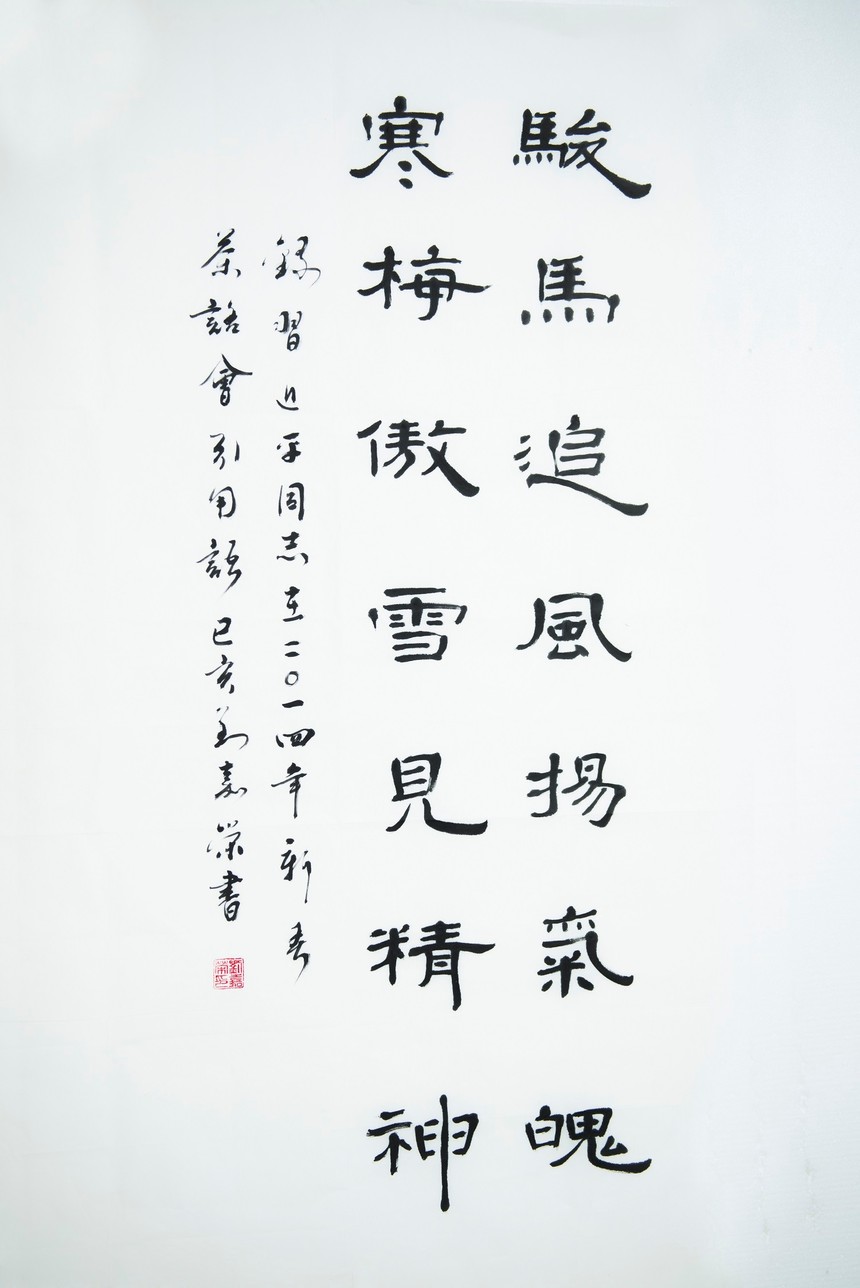 駿馬追風揚氣魄
寒梅傲雪見精神
錄習近平同志在二〇一四年新春
茶話會引用語己亥劉嘉榮書
劉嘉榮印